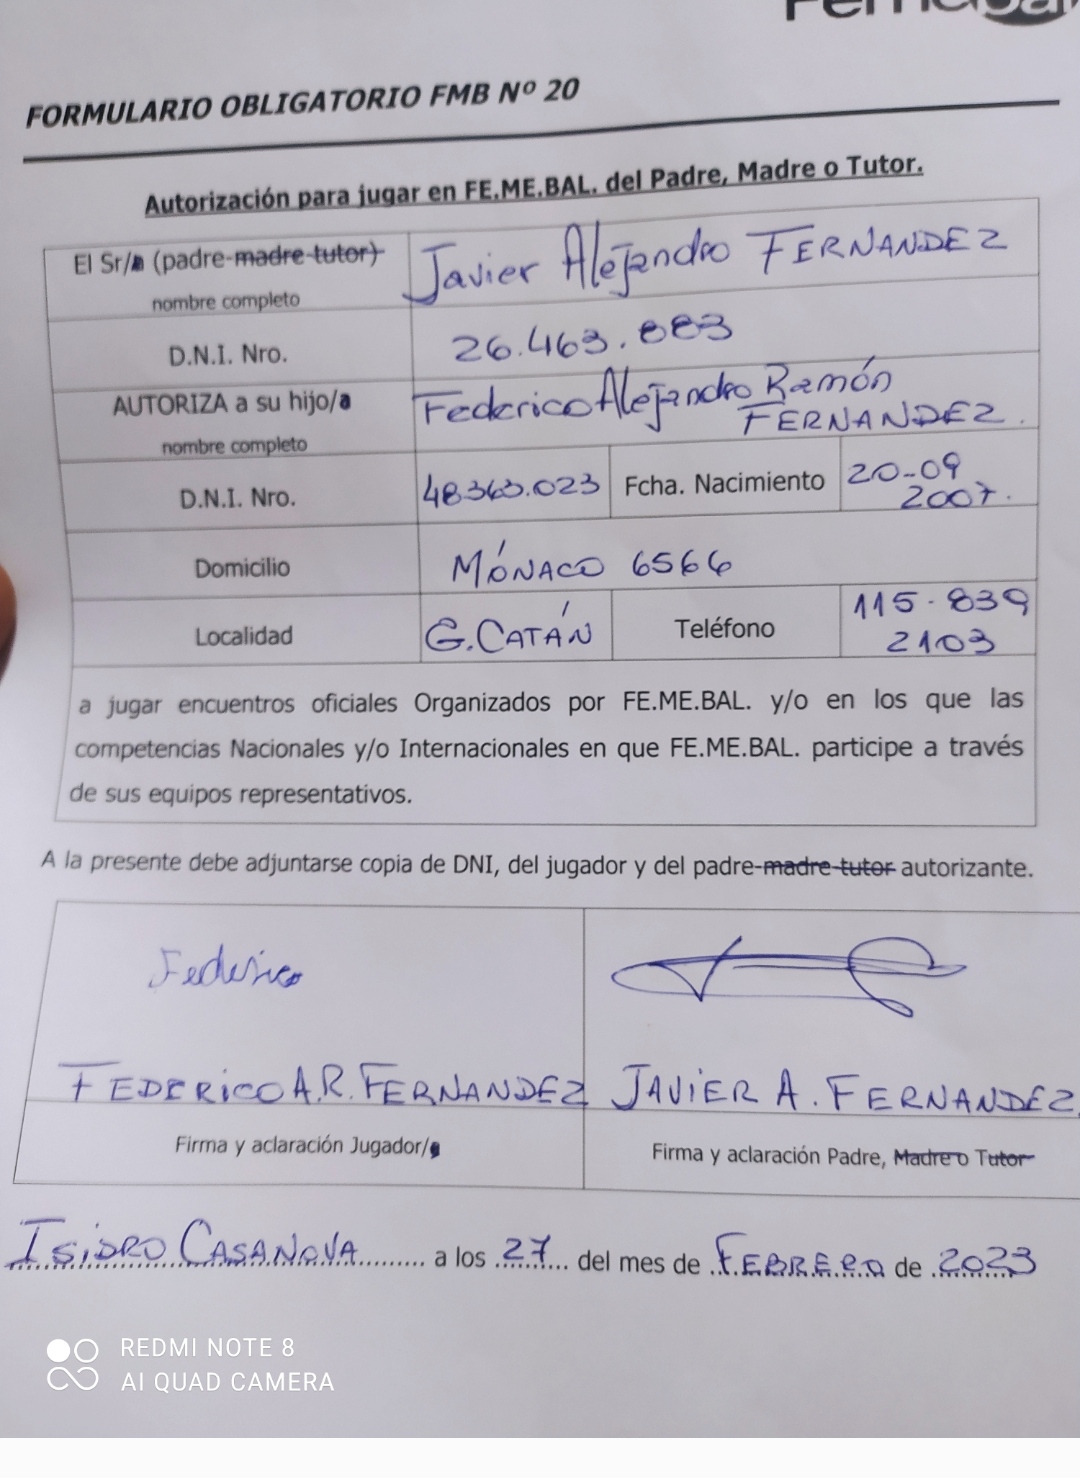 Femebal
FORMULARIO OBLIGATORIO FMB Nº 20
Autorización para jugar en FE.ME.BAL. del Padre, Madre o Tutor.
El Sr/a (padre-madre-tutor) Javier Alejandro FERNANDEZ
nombre completo
D.N.I. Nro. 26.463.883
AUTORIZA a su hijo/a Federico Alejandro Ramón
nombre completo FERNANDEZ.
D.N.I. Nro. 48363.023 Fcha. Nacimiento 20-09
2007.
Domicilio MÓNACO 6566
Localidad G.CATÁN Teléfono 115-839
2103
a jugar encuentros oficiales Organizados por FE.ME.BAL. y/o en los que las
competencias Nacionales y/o Internacionales en que FE.ME.BAL. participe a través
de sus equipos representativos.
A la presente debe adjuntarse copia de DNI, del jugador y del padre-madre-tutor autorizante.
Federico
FEDERICO A.R. FERNANDEZ JAVIER A. FERNANDEZ
Firma y aclaración Jugador/a Firma y aclaración Padre, Madre o Tutor
ISIDRO CASANOVA a los 27 del mes de FEBRERO de 2023
REDMI NOTE 8
AI QUAD CAMERA